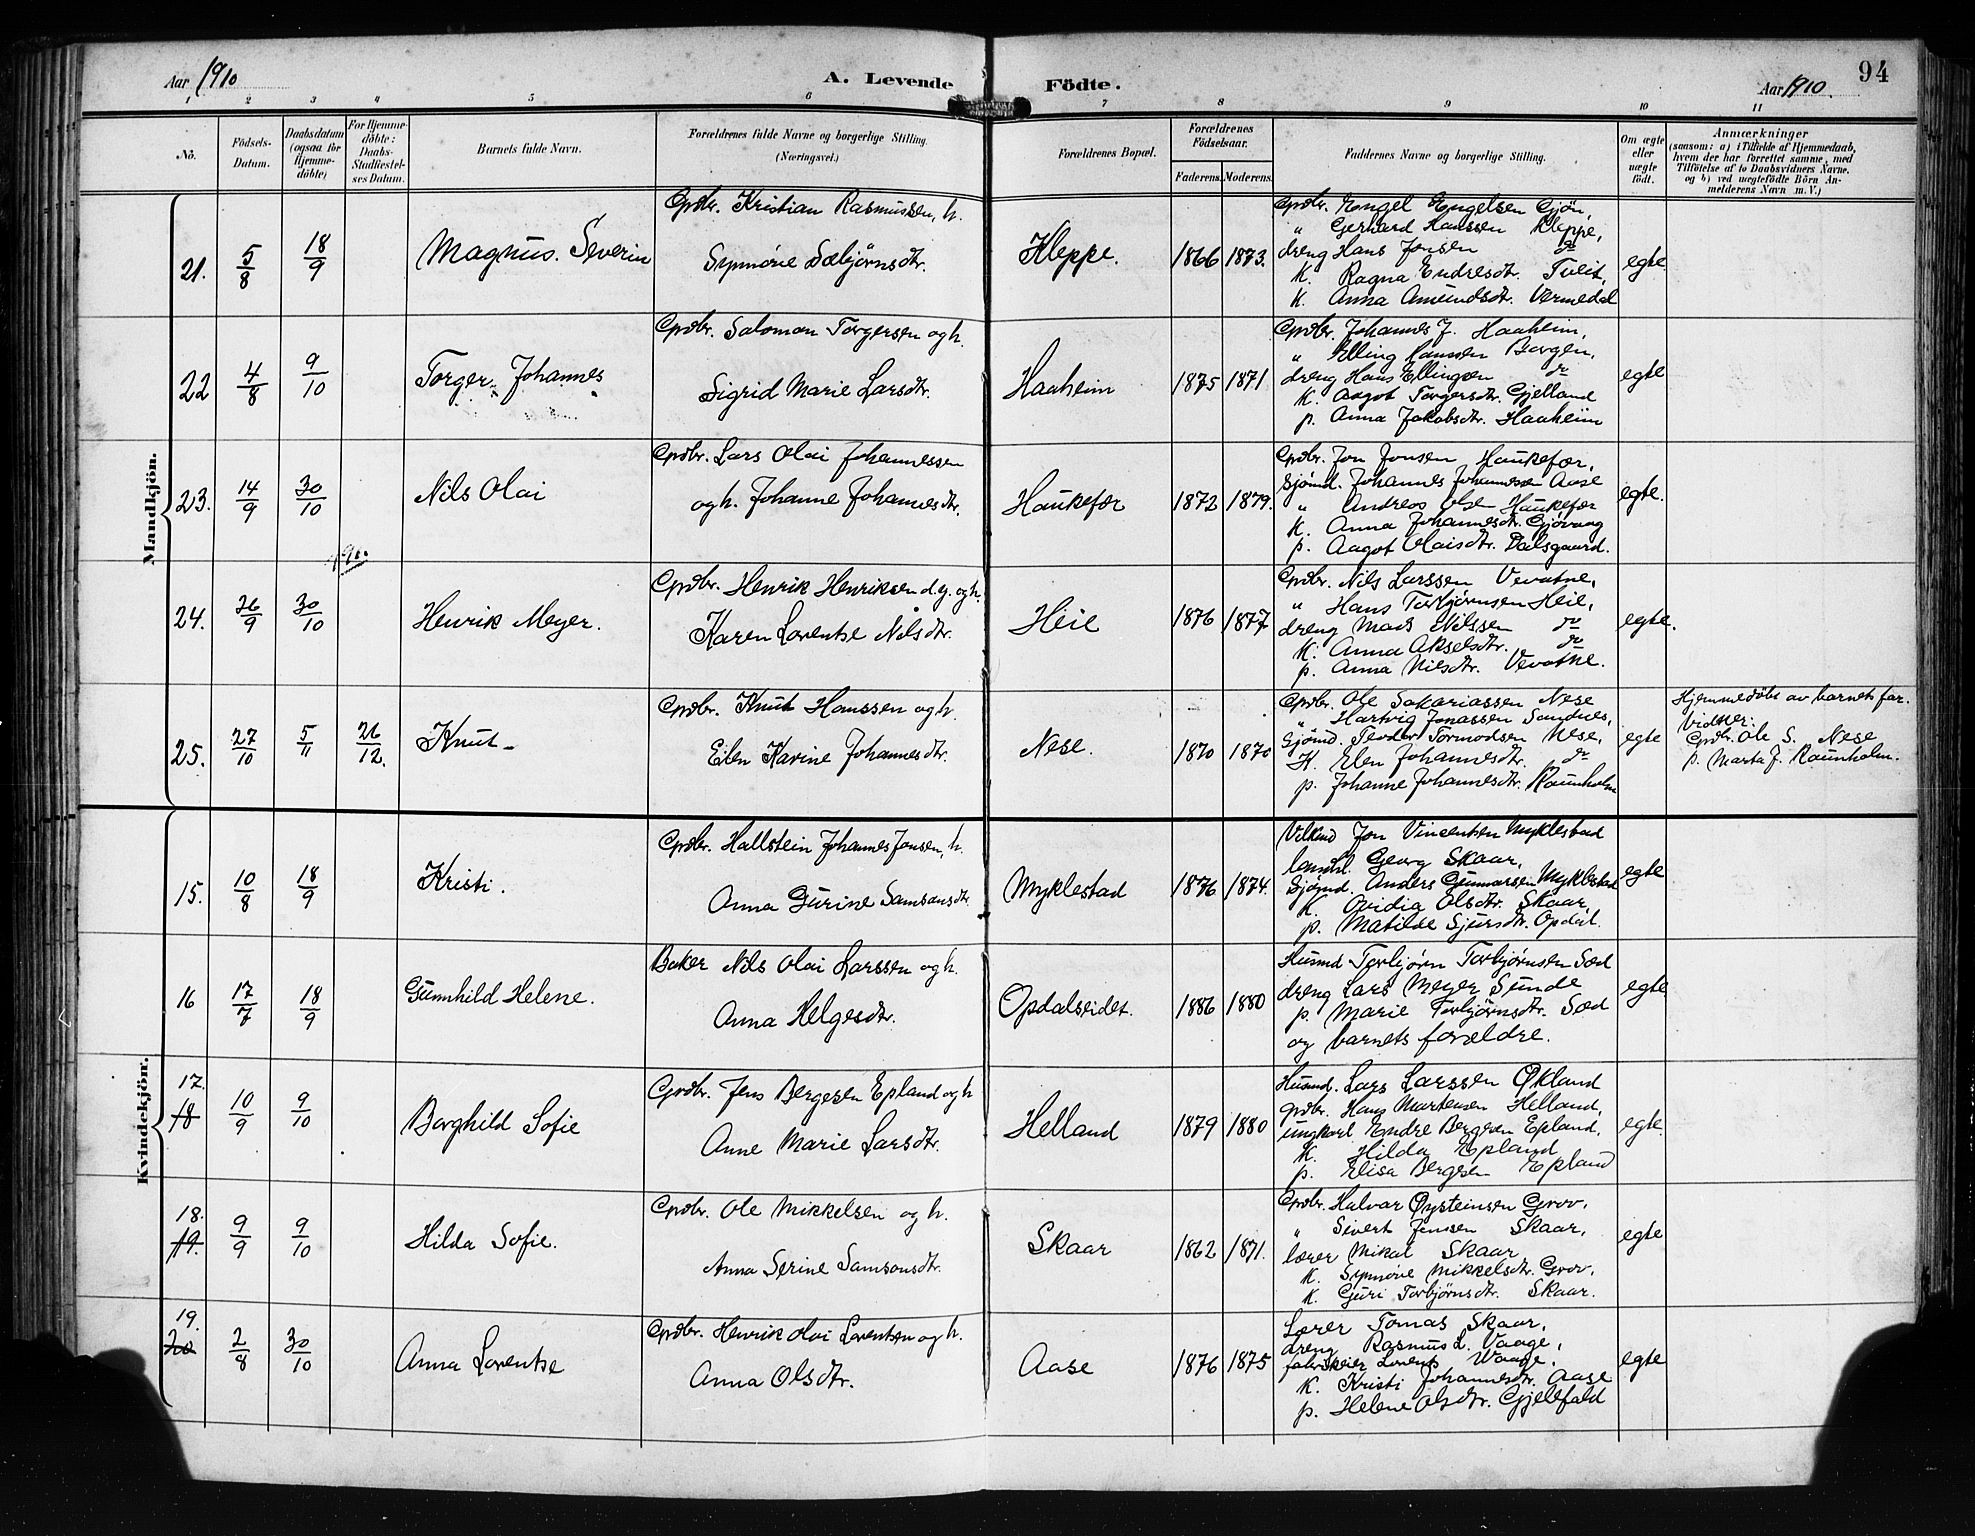 Aar 1910
A. Levende
Födte.
Aar 1910.
94
1 2 3 4 5 6 7 8 9 10 11
No.
Födsels-
Datum.
Daabsdatum
(ogsaa for
Hjemme-
döbte)
For Hjemme-
döbte:
Daabs-
Stadfæstel-
ses Datum.
Barnets fulde Navn.
Forældrenes fulde Navne og borgerlige Stilling.
(Næringsvei.)
Forældrenes Bopæl.
Forældrenes
Födselsaar.
Faderens.
Moderens.
Faddernes Navne og borgerlige Stilling.
Om ægte
eller
uægte
födt.
Anmærkninger
(saasom: a) i Tilfælde af Hjemmedaab,
hvem der har forrettet samme, med
Tilföielse af to Daabsvidners Navne,
og b) ved uægtefödte Börn An-
melderens Navn m. V.)
Mandkjön.
21. 5/8 18/9 Magnus Severin
Grdbr. Kristian Rasmussen, h.
Synnøve Sæbjörnsdtr.
Kleppe. 1866 1873.
Grdbr. Engel Engelsen Gjön,
„ Gerhard Hanssen Kleppe,
dreng Hans Jonsen do
K. Ragna Endresdtr. Tveit,
K. Anna Amundsdtr. Vermedal
egte.
22 4/8 9/10 Torger Johannes
Grdbr. Salomon Torgersen og h.
Sigrid Marie Larsdtr.
Haaheim 1875 1871
Grdbr. Johannes J. Haaheim,
„ Elling Hanssen Bergen,
dreng Hans Ellingsen do
K. Aagot Torgersdtr. Gjelland
p. Anna Jakobsdtr. Haaheim
egte
23. 14/9 30/10 Nils Olai
Grdbr. Lars Olai Johannessen
og h. Johanne Johannesdtr.
Haukefær 1872 1879.
Grdbr. Jon Jonsen Haukefær,
Sjømd. Johannes Johannessen Aase
„ Andreas Olsen Haukefær
K. Anna Johannesdtr. Gjövaag
p. Aagot Olaisdtr. Dalsgaard.
egte.
1910.
24. 26/9 30/10 Henrik Meyer.
Grdbr. Henrik Henriksen d.y. og h.
Karen Lorentse Nilsdtr.
Heie 1876 1877
Grdbr. Nils Larssen Vevatne,
„ Hans Torbjørnsen Heie,
dreng Mads Nilssen do
K. Anna Akselsdtr. do
p. Anna Nilsdtr. Vevatne.
egte.
25. 27/10 5/11 26/12. Knut
Grdbr. Knut Hanssen og h.
Elen Karine Johannesdtr.
Nese. 1870 1870
Grdbr. Ole Sakariassen Nese
„ Hartvig Jonassen Sandnes,
Sjømd. Teodor Tormodsen Nese,
K. Elen Johannesdtr. do
p. Johanne Johannesdtr. Raunholm
egte
Hjemmedöbt av barnets far.
Vidner:
Grdbr. Ole S. Nese
p. Marta J. Raunholm.
Kvindekjön.
15. 10/8 18/9 Kristi.
Grdbr. Hallstein Johannes Jonsen, h.
Anna Gurine Samsonsdtr.
Myklestad 1876 1874.
Jon Vincentsen Myklestad
Georg Skaar,
Sjømd. Anders Gunnarsen Myklestad
K. Ovidia Olsdtr. Skaar,
p. Matilde Sjursdtr. Opdal.
egte
16 17/7 18/9 Gunnhild Helene.
Baker Nils Olai Larssen og h.
Anna Helgesdtr.
Opdalseidet. 1886 1880
Husmd Torbjørn Torbjørnsen Sæd
dreng Lars Meyer Sunde
p. Marie Torbjørnsdtr. Sæd
og barnets forældre.
egte
17.
18 10/9 9/10 Borghild Sofie
Grdbr. Jens Bergesen Epland og h
Anne Marie Larsdtr.
Helland 1879 1880
Husmd. Lars Larssen Økland
grdbr. Hans Martensen Helland,
ungkarl Endre Bergesen Epland,
K. Hilda Epland
p. Elisa Bergsen Epland
egte.
18.
19. 9/9 9/10 Hilda Sofie.
Grdbr. Ole Mikkelsen og h.
Anna Serine Samsonsdtr.
Skaar 1862 1871.
Grdbr. Halvar Øysteinsen Grov,
„ Sivert Jenssen Skaar,
lærer Mikal Skaar
K. Synnøve Mikkelsdtr. Grov,
K. Guri Torbjørnsdtr. Skaar.
egte
19.
20 2/8 30/10 Anna Lorentse
Grdbr. Henrik Olai Lorentsen og h.
Anna Olsdtr.
Aase 1876 1875
Lærer Tomas Skaar,
dreng Rasmus L. Vaage,
fabrikeier Lorents Waage,
K. Kristi Johannesdtr. Aase
p. Helene Olsdtr. Gjelefald
egte